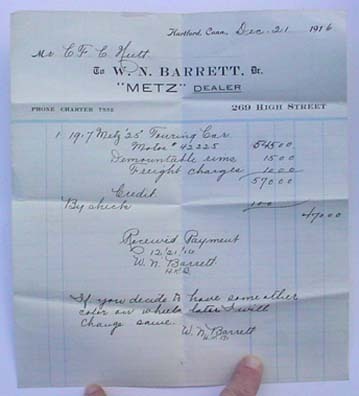 Hartford, Conn., Dec. 21 1916
Mr. C. F. C. Hutt
To W. N. BARRETT, Dr.
"METZ" DEALER
PHONE CHARTER 7552 269 HIGH STREET
1 1917 Metz "25" Touring Car
Motor # 42225 545 00
Demountable rims 15 00
Freight charges 10 00
570 00
Credit
By check 100
470 00
Received Payment
12/21/16
W. N. Barrett
If you decide to have some other
color on wheels later I will
change same.
W. N. Barrett